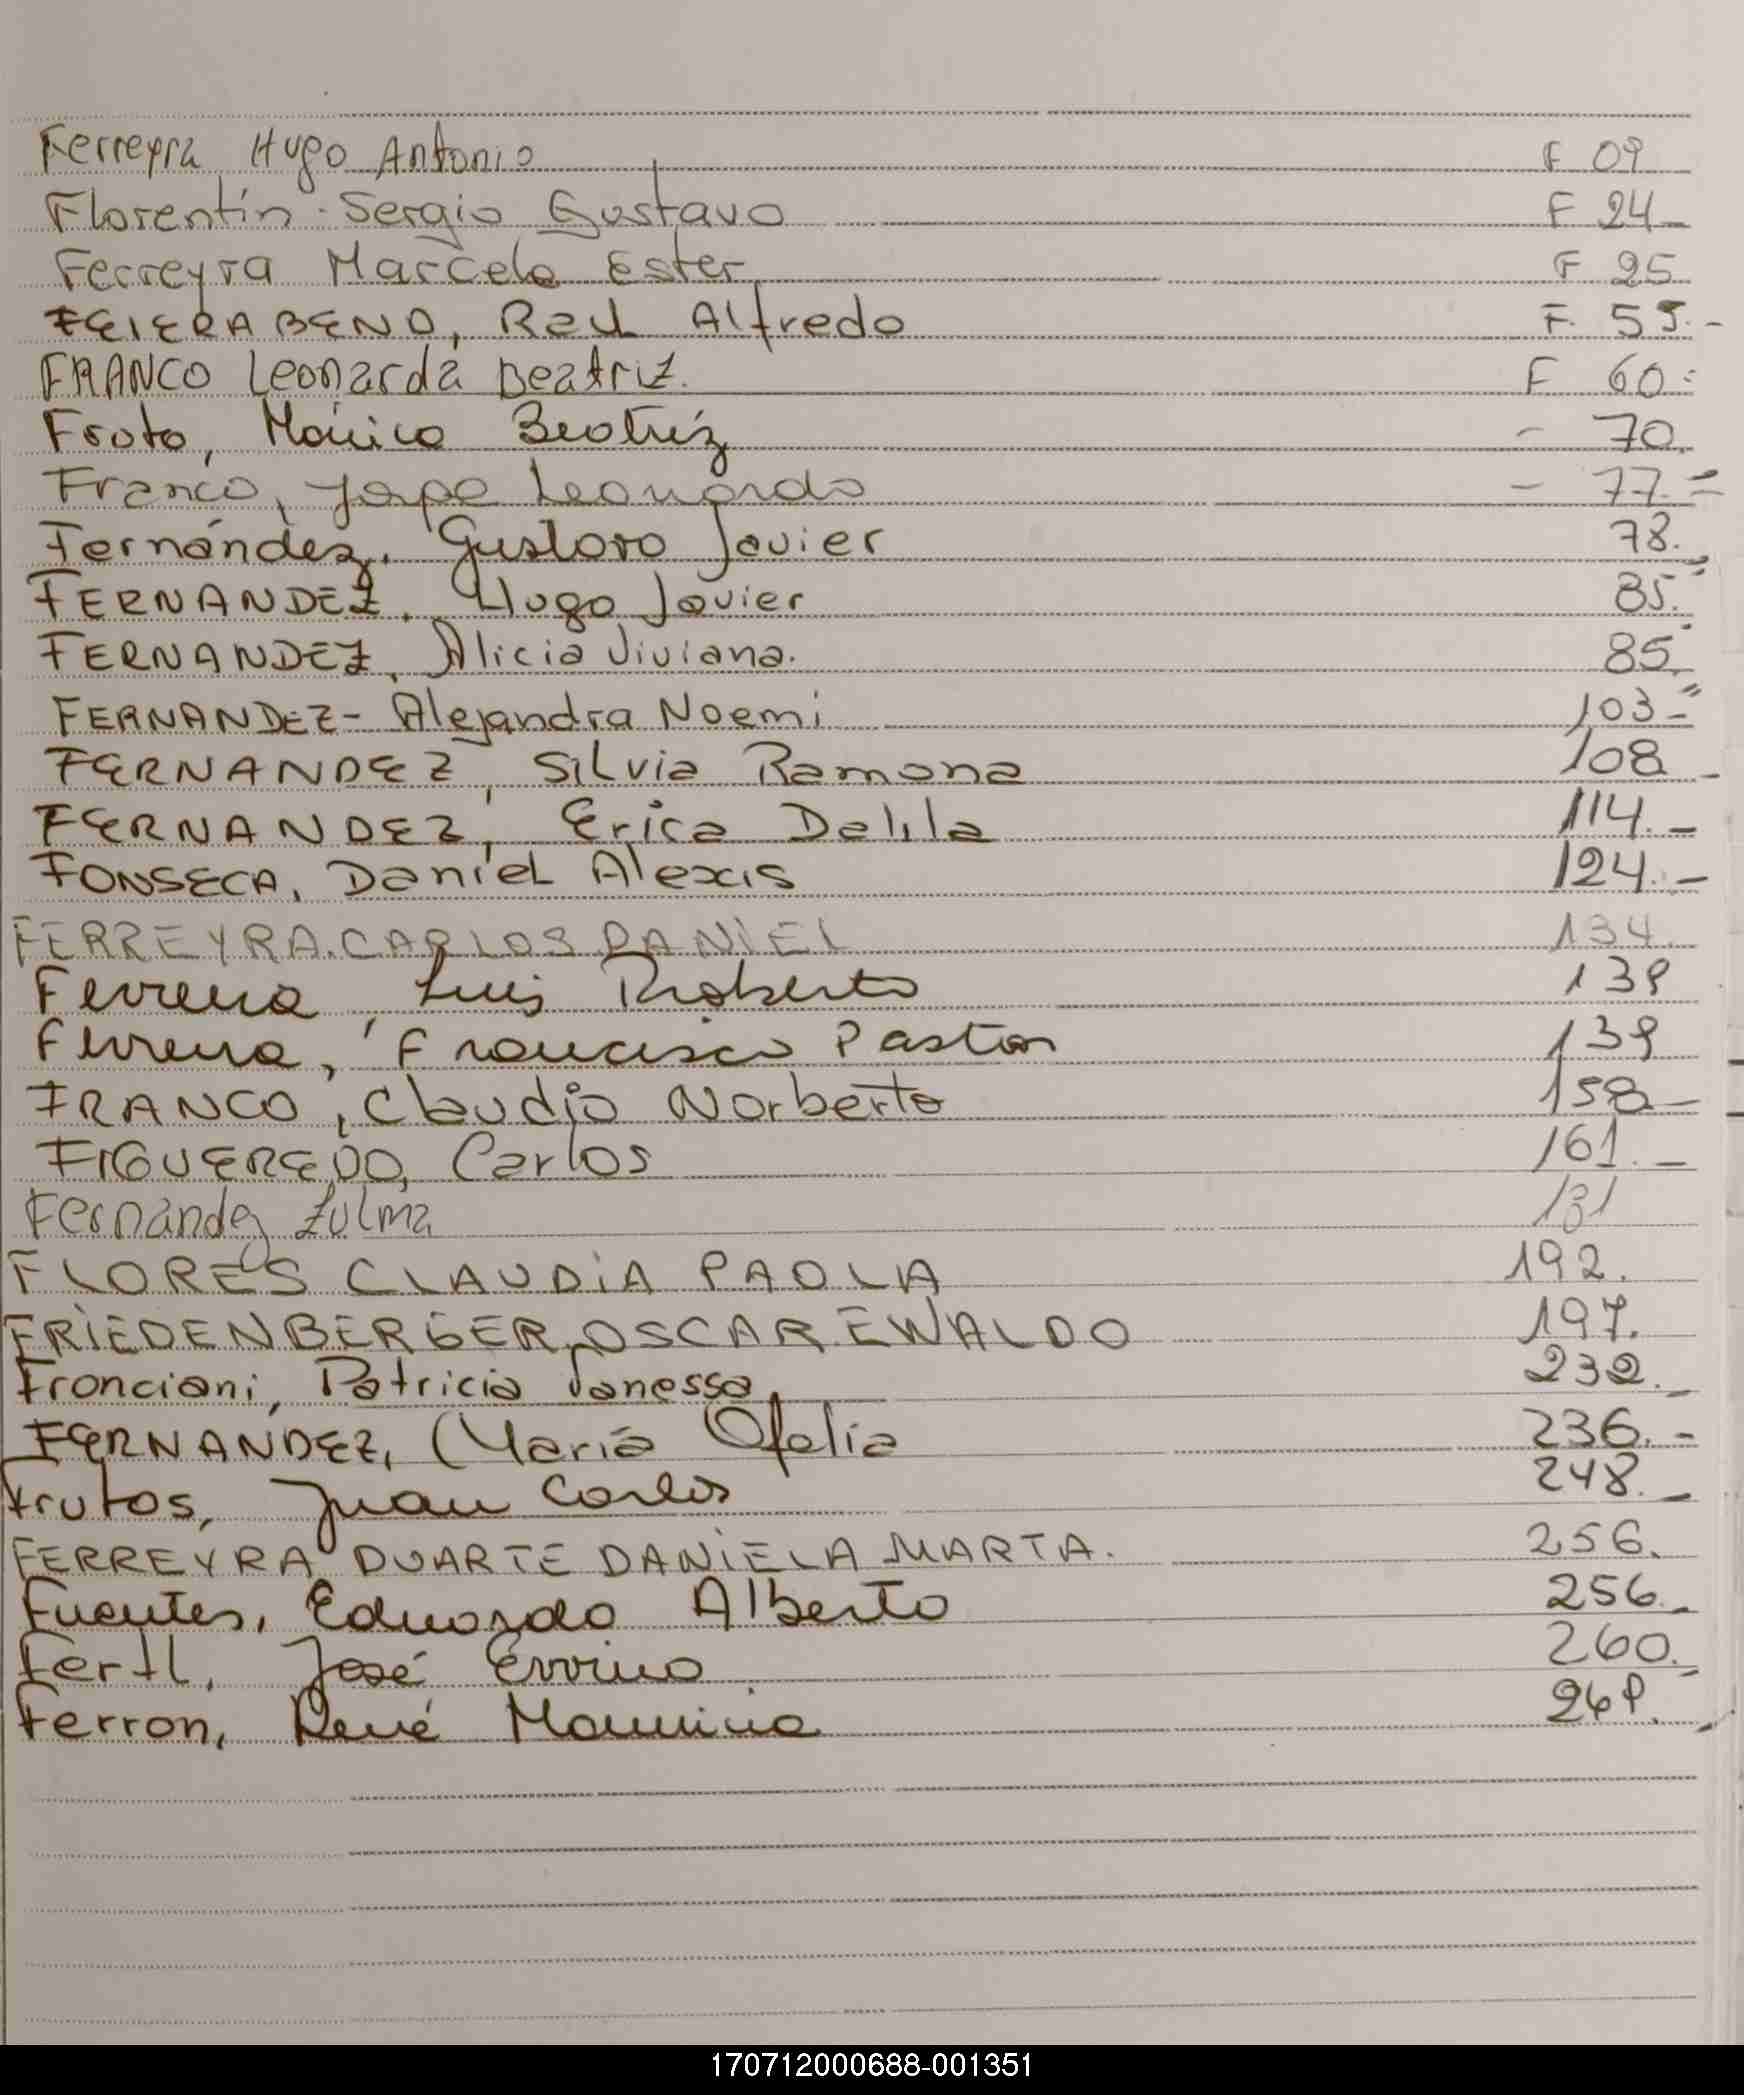 Ferreyra Hugo Antonio F 09
Florentín Sergio Gustavo F 24-
Ferreyra Marcela Ester F 25
FEIERABEND, Raul Alfredo F. 55.-
FRANCO Leonarda Beatriz. F 60.=
Mónica Beatríz - 70.
Franco, Jorge Leonardo - 77.=
Fernández, Gustavo Javier 78.=
FERNANDEZ, Hugo Javier 85.=
FERNANDEZ, Alicia Viviana. 85
FERNANDEZ- Alejandra Noemi 103=
FERNANDEZ, Silvia Ramona 108.-
FERNANDEZ, Erica Dalila 114.-
FONSECA, Daniel Alexis 124.-
FERREYRA. CARLOS DANIEL 134.
Ferreira, Luis Roberto 139
Ferreira, Francisco Pastor 139
FRANCO, Claudio Norberto 158-
FIGUEREDO, Carlos 161.-
Fernández Zulma
FLORES CLAUDIA PAOLA 192.
FRIEDENBERGER, OSCAR EWALDO 197.
Franciani, Patricia Vanessa 232.-
FERNANDEZ, María Ofelia 236.-
Frutos, Juan Carlos 248.-
FERREYRA DUARTE DANIELA MARTA. 256.
Fuentes, Eduardo Alberto 256.-
Fertl, José 260.-
Ferron, René
170712000688-001351